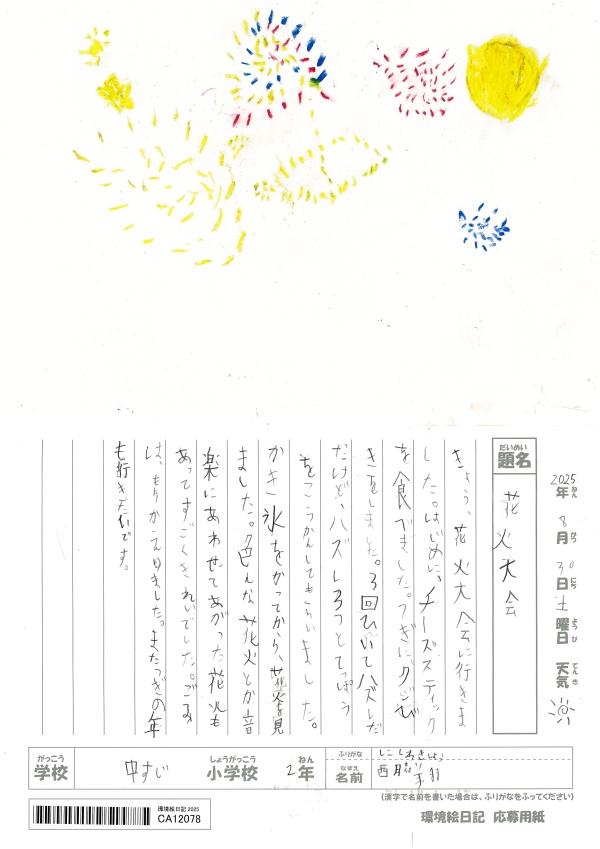 2025年ねん8月がつ30日にち土曜日ようび 天気てんき
題名だいめい 花火大会
きょう、花火大会に行きま
した。はじめに、チーズスティック
を食べました。つぎに、クジび
きをしました。3回ひいてハズレだ
だけど、ハズレ3つとてっぽう
をこうかんしてもらいました。
かき氷をかってから、花火を見
ました。色んな花火とか音
楽にあわせてあがった花火も
あってすごくきれいでした。ごみ
は、もちかえりました。またつぎの年
も行きたいです。
がっこう 学校 中すじ しょうがっこう 小学校 2年ねん
ふりがな
なまえ 名前 西
(漢字で名前を書いた場合は、ふりがなをふってください)
環境絵日記 応募用紙
環境絵日記 2025
CA12078